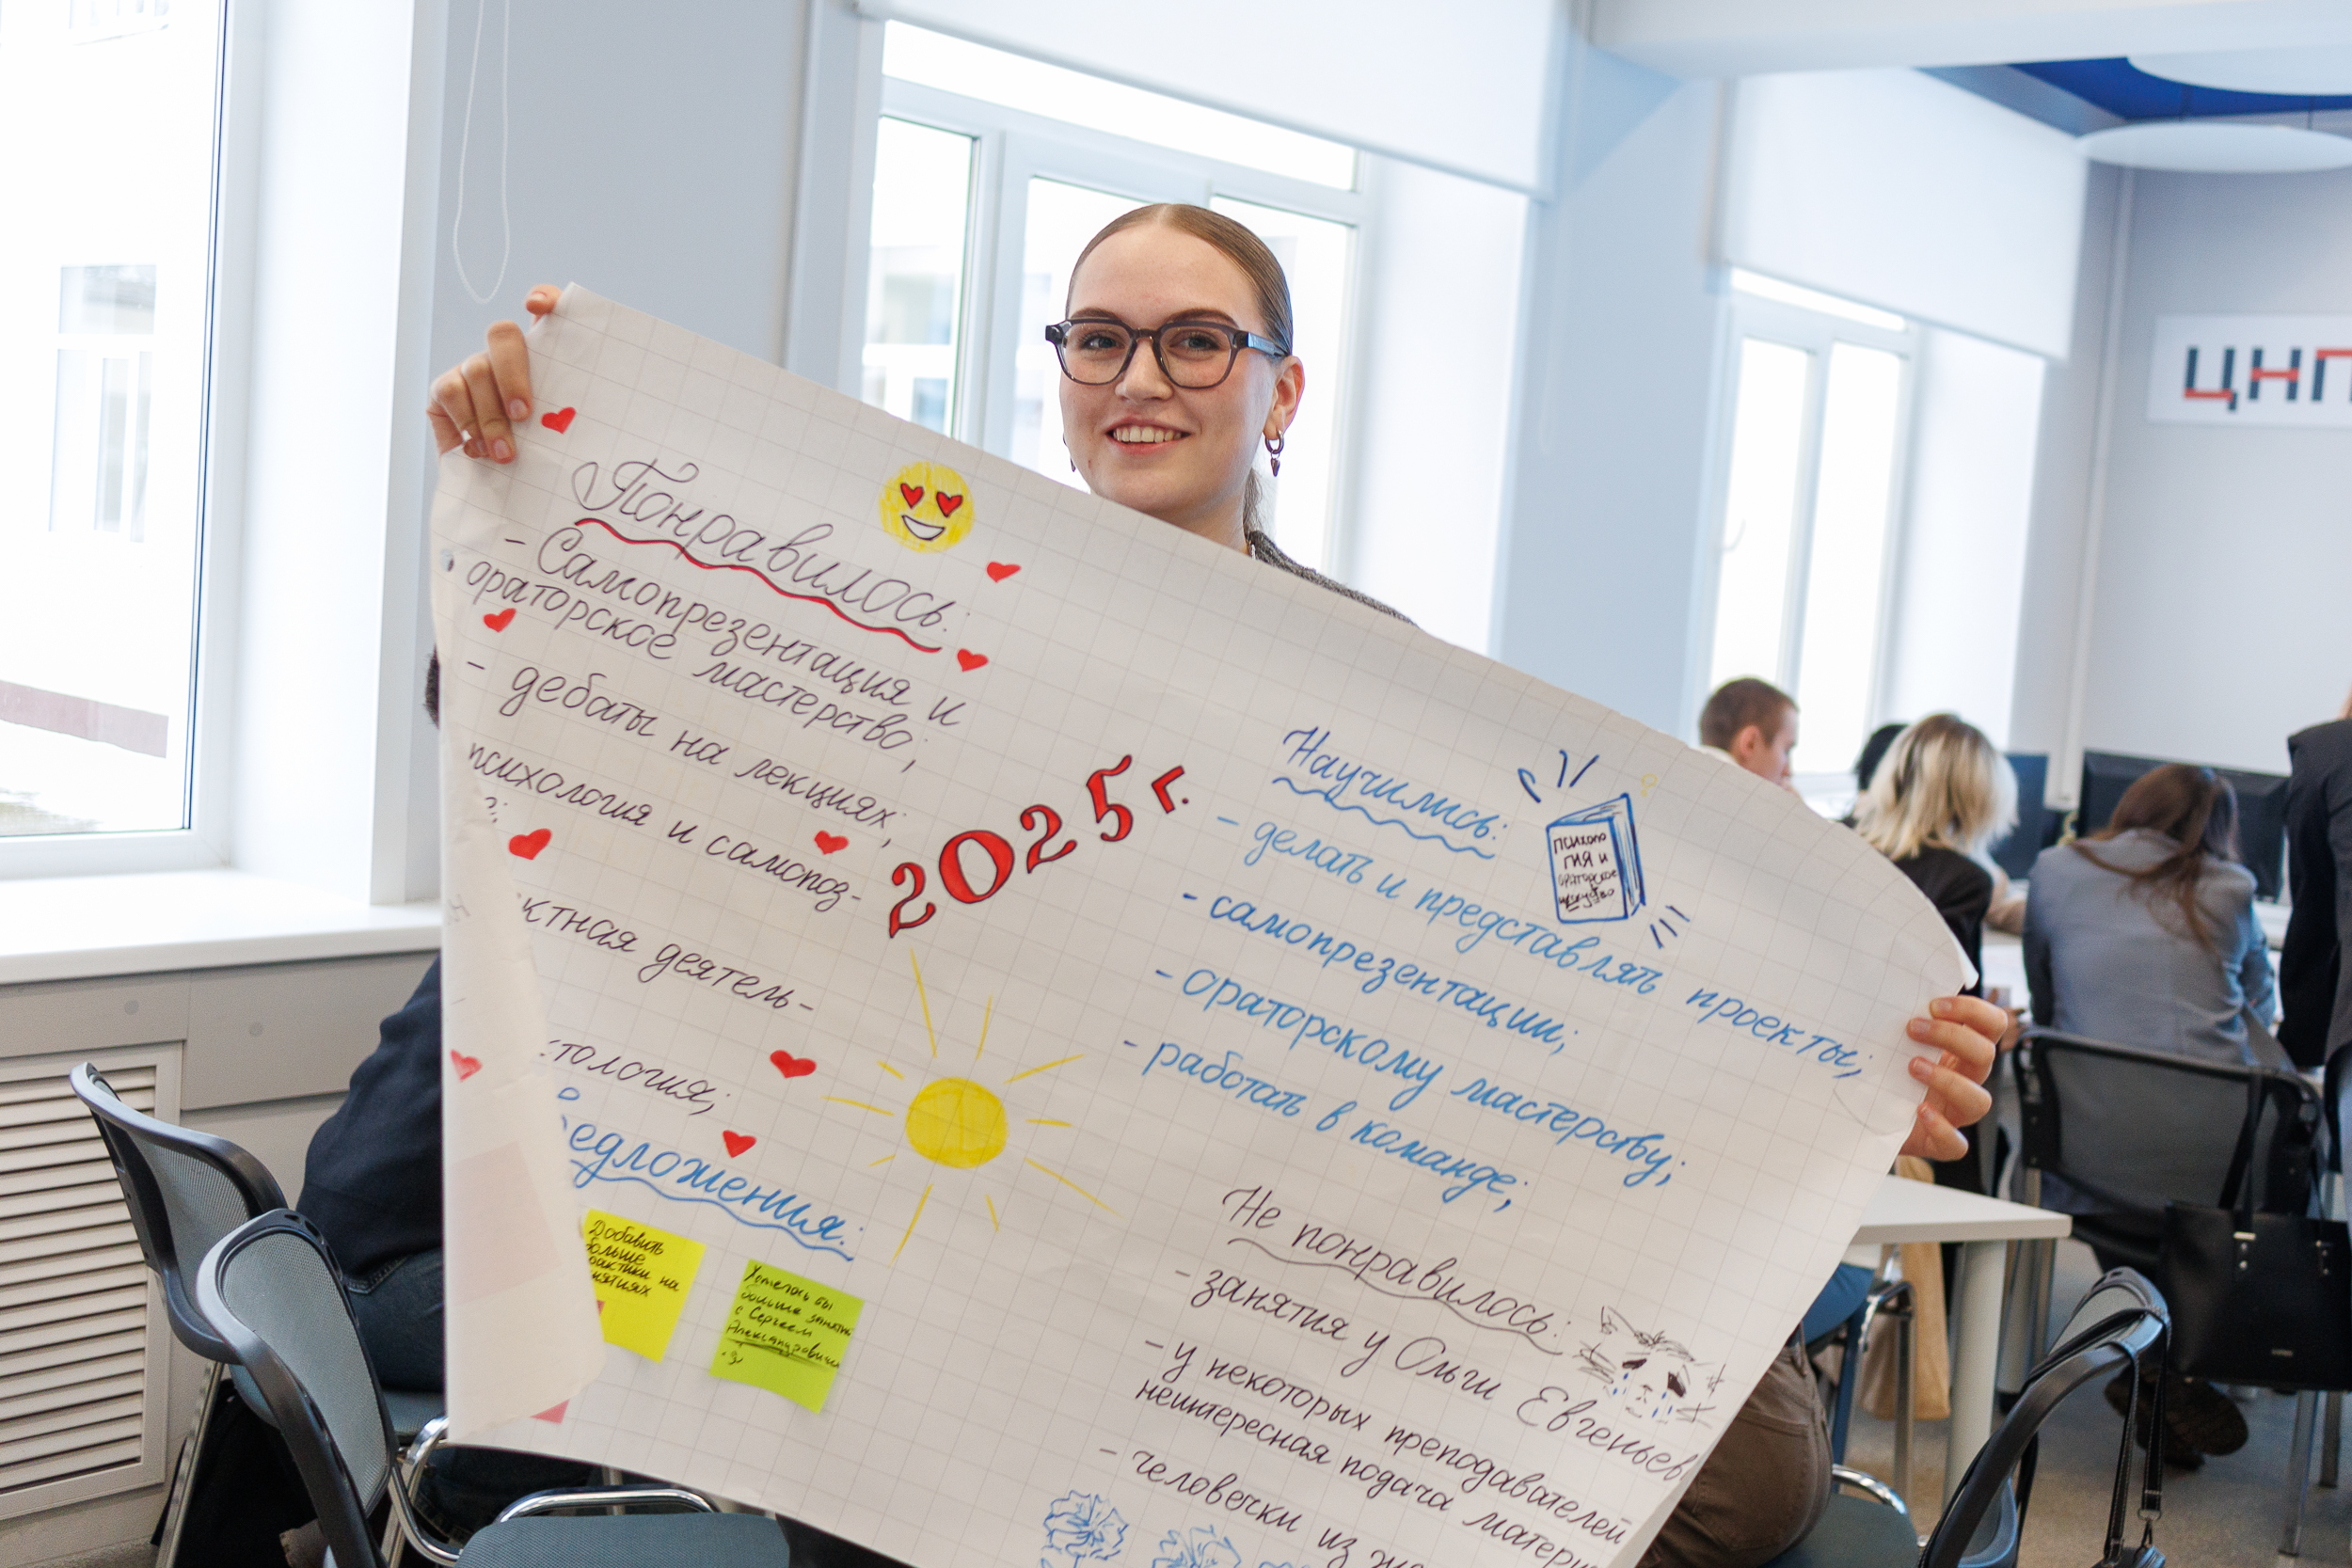 Понравилось:
- Самопрезентация и
ораторское мастерство;
- дебаты на лекциях;
психология и самопоз-
ктная деятель-
тология;
едложения:
Добавить
больше
рактики на
нятиях
Хотелось бы
больше занятий
с Сергеем
Александровичем
2025 г.
Научились:
- делать и представлять проекты;
- самопрезентации;
- ораторскому мастерству;
- работать в команде;
Психоло
гия и
ораторское
искусство
Не понравилось:
- занятия у Ольги Евгеньев
- у некоторых преподавателей
неинтересная подача матери
- человечки из
ЦНП